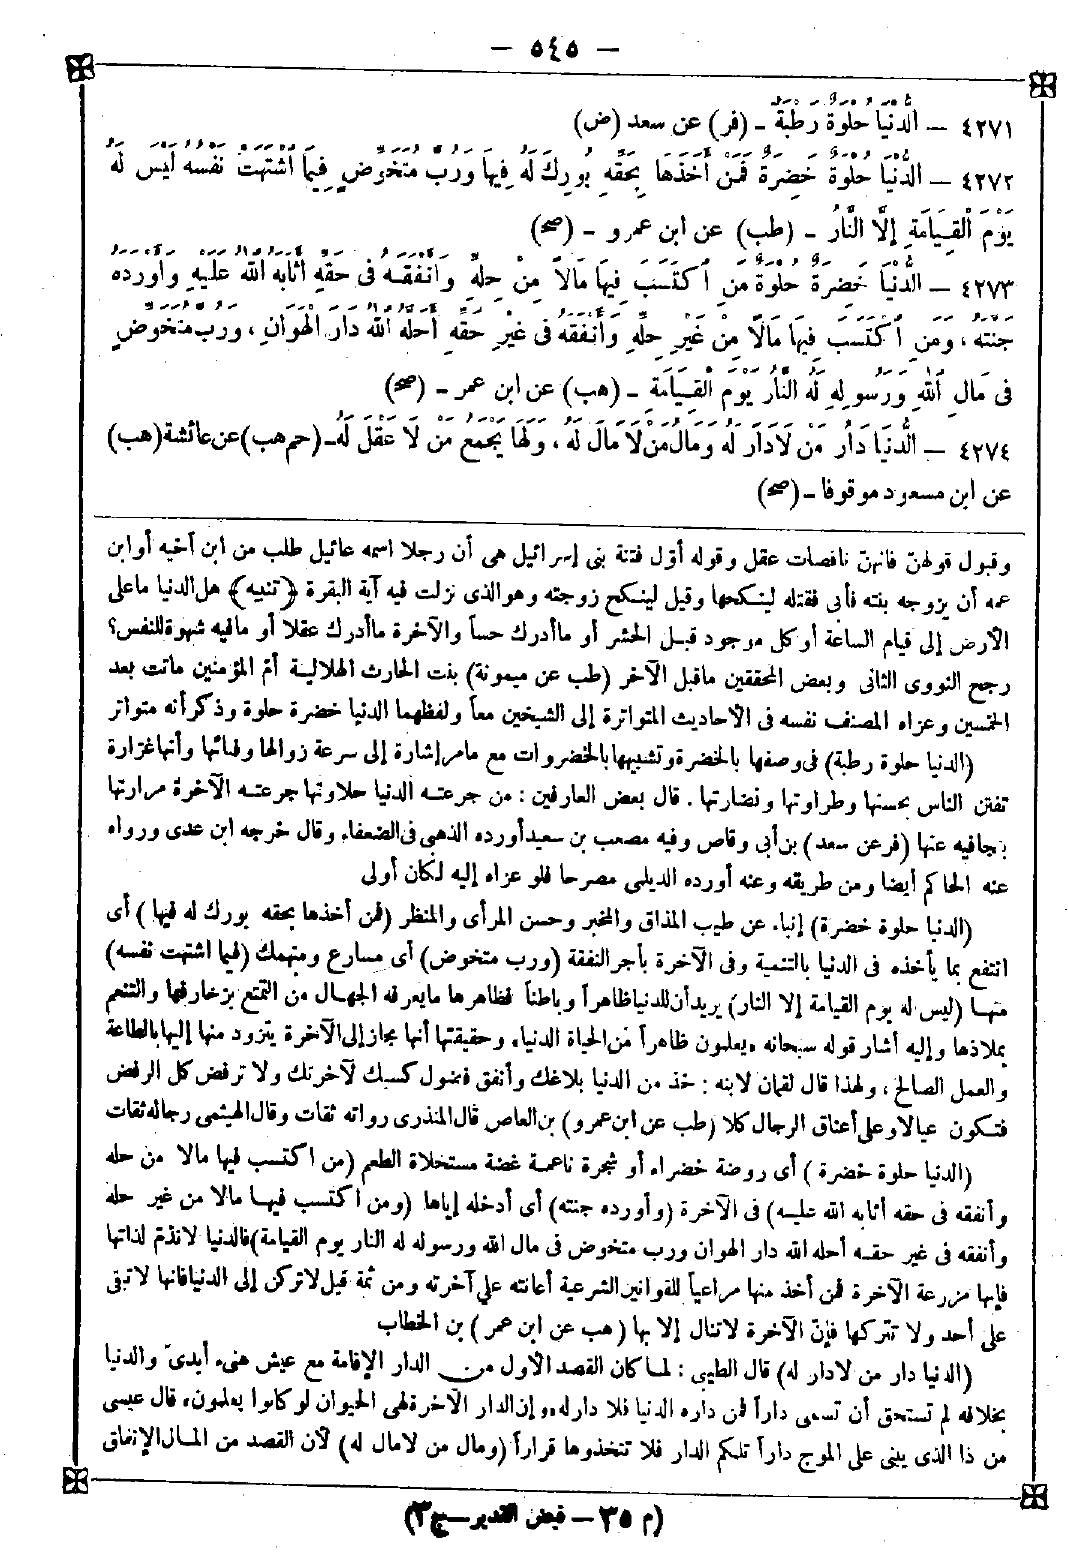 — ٥٤٥ —
٤٢٧١ — الدُّنْيَا حُلْوَةٌ رَطْبَةٌ - (فر) عن سعد (ض)
٤٢٧٢ — الدُّنْيَا حُلْوَةٌ خَضِرَةٌ فَمَنْ أَخَذَهَا بِحَقِّهِ بُورِكَ لَهُ فِيهَا وَرُبَّ مُتَخَوِّضٍ فِيمَا اشْتَهَتْ نَفْسُهُ لَيْسَ لَهُ
يَوْمَ الْقِيَامَةِ إِلَّا النَّارُ - (طب) عن ابن عمرو - (صح)
٤٢٧٣ — الدُّنْيَا خَضِرَةٌ حُلْوَةٌ مَنِ اكْتَسَبَ فِيهَا مَالًا مِنْ حِلِّهِ وَأَنْفَقَهُ فِى حَقِّهِ أَثَابَهُ اللهُ عَلَيْهِ وَأَوْرَدَهُ
جَنَّتَهُ ، وَمَنِ اكْتَسَبَ فِيهَا مَالًا مِنْ غَيْرِ حِلِّهِ وَأَنْفَقَهُ فِى غَيْرِ حَقِّهِ أَحَلَّهُ اللهُ دَارَ الْهَوَانِ ، وَرُبَّ مُتَخَوِّضٍ
فِى مَالِ اللهِ وَرَسُولِهِ لَهُ النَّارُ يَوْمَ الْقِيَامَةِ - (هب) عن ابن عمر - (صح)
٤٢٧٤ — الدُّنْيَا دَارُ مَنْ لَا دَارَ لَهُ وَمَالُ مَنْ لَا مَالَ لَهُ ، وَلَهَا يَجْمَعُ مَنْ لَا عَقْلَ لَهُ - (حم هب) عن عائشة (هب)
عن ابن مسعود موقوفا - (صح)
وقبول قولهن فانهن ناقصات عقل وقوله أوّل فتنة بنى إسرائيل هى أن رجلا اسمه عائيل طلب من ابن أخيه أو ابن
عمه أن يزوجه بنته فأبى فقتله لينكحها وقيل لينكح زوجته وهو الذى نزلت فيه آية البقرة ﴿تنبيه﴾ هل الدنيا ما على
الأرض إلى قيام الساعة أو كل موجود قبل الحشر أو ما أدرك حساً والآخرة ما أدرك عقلا أو ما فيه شهوة للنفس؟
رجح النووى الثانى وبعض المحققين ما قبل الآخر (طب عن ميمونة) بنت الحارث الهلالية أم المؤمنين ماتت بعد
الخمسين وعزاه المصنف نفسه فى الأحاديث المتواترة إلى الشيخين معاً ولفظهما الدنيا خضرة حلوة وذكر أنه متواتر
(الدنيا حلوة رطبة) فى وصفها بالخضرة وتشبيهها بالخضروات مع مامر إشارة إلى سرعة زوالها وفنائها وأنها غزارة
تفتن الناس بحسنها وطراوتها ونضارتها . قال بعض العارفين : من جرعته الدنيا حلاوتها جرعته الآخرة مرارتها
بتجافيه عنها (فر عن سعد) بن أبى وقاص وفيه مصعب بن سعيد أورده الذهبى فى الضعفاء وقال خرجه ابن عدى ورواه
عنه الحاكم أيضا ومن طريقه وعنه أورده الديلمى مصرحا فلو عزاه إليه لكان أولى
(الدنيا حلوة خضرة) إنباء عن طيب المذاق والمخبر وحسن المرأى والمنظر (فمن أخذها بحقه بورك له فيها ) أى
انتفع بما يأخذه فى الدنيا بالتنمية وفى الآخرة بأجر النفقة (ورب متخوض) أى مسارع ومنهمك (فيما اشتهت نفسه)
منها (ليس له يوم القيامة إلا النار) يريد أن للدنيا ظاهراً وباطناً فظاهرها ما يعرفه الجهال من التمتع بزخارفها والتنعم
بملاذها وإليه أشار قوله سبحانه «يعلمون ظاهراً من الحياة الدنيا» وحقيقتها أنها مجاز إلى الآخرة يتزود منها إليها بالطاعة
والعمل الصالح ، ولهذا قال لقمان لابنه : خذ من الدنيا بلاغك وأنفق فضول كسبك لآخرتك ولا ترفض كل الرفض
فتكون عيالا وعلى أعناق الرجال كلا (طب عن ابن عمرو) بن العاص قال المنذرى رواته ثقات وقال الهيثمى رجاله ثقات
(الدنيا حلوة خضرة ) أى روضة خضراء أو شجرة ناعمة غضة مستحلاة الطعم (من اكتسب فيها مالا من حله
وأنفقه فى حقه أثابه الله عليه) فى الآخرة (وأورده جنته) أى أدخله إياها (ومن اكتسب فيها مالا من غير حله
وأنفقه فى غير حقه أحله الله دار الهوان ورب متخوض فى مال الله ورسوله له النار يوم القيامة) فالدنيا لا تذم لذاتها
فإنها مزرعة الآخرة فمن أخذ منها مراعياً للقوانين الشرعية أعانته على آخرته ومن ثمة قيل لا تركن إلى الدنيا فانها لا تبقى
على أحد ولا تتركها فإن الآخرة لا تنال إلا بها (هب عن ابن عمر ) بن الخطاب
(الدنيا دار من لا دار له) قال الطيبى : لما كان القصد الأول من الدار الإقامة مع عيش هنىء أبدىّ والدنيا
بخلافه لم تستحق أن تسمى داراً فمن داره الدنيا فلا دار له «وإن الدار الآخرة لهى الحيوان لو كانوا يعلمون» قال عيسى
من ذا الذى يبنى على الموج داراً تلكم الدار فلا تتخذوها قراراً (ومال من لا مال له) لأن القصد من المال الإنفاق
(م ٣٥ — فيض القدير — ج ٣)